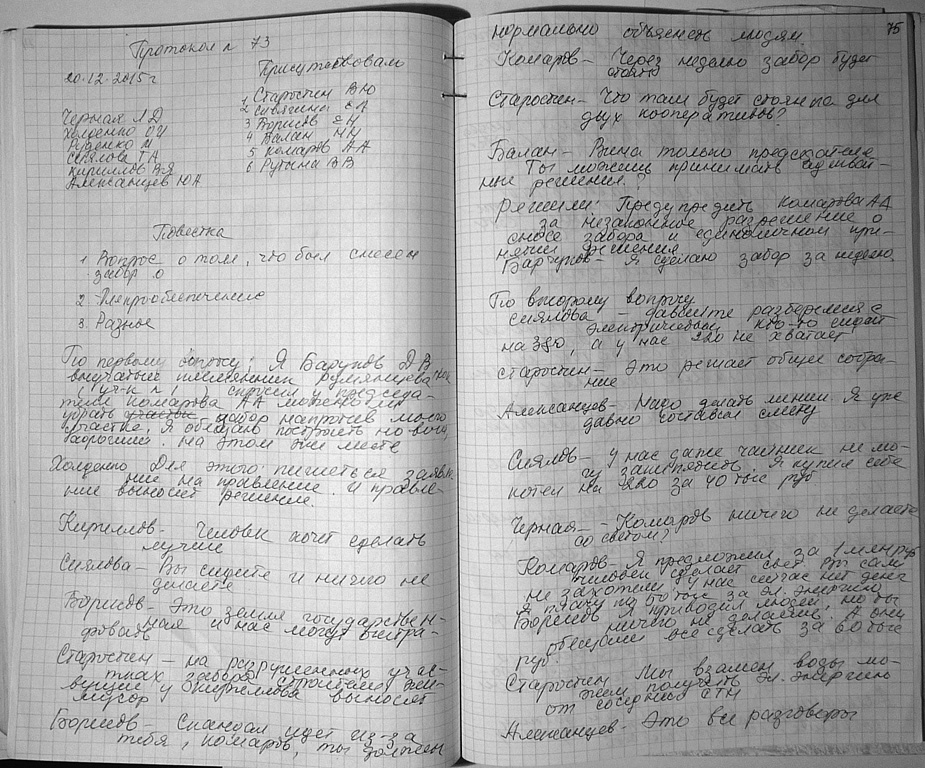 Протокол № 73
20.12.2015г
Присутствовали
1 Старостин ВЮ
2 Сиялина СА
3 Борисов ЕН
4 Балан НН
5 Комаров АА
6 Рутына ВВ
Черная ЛД
Холденко ОИ
Руденко М
Сиялова ТА
Кириллов ВЯ
Алексанцев ЮА
Повестка
1 Вопрос о том, что был снесен
забор
2. Электрообеспечение
3. Разное
По первому вопросу: Я Барунов ДВ
внучатый племянник Румянцева
спросил у председа-
теля Комарова АА можно ли
убрать участок забор напротив моего
участка. Я обещаю построить новый,
на этом же месте
Холденко Для этого пишеться заявле-
ние на правление. И правле-
ние выносит решение.
Кириллов- Человек хочет сделать
лучше
Сиялова- Вы сидите и ничего не
делаете
Борисов- Это земля государствен-
ная и нас могут оштра-
фовать
Старостин- на разрушенных учас-
тках забора
мусор у выносят
Борисов- Скандал идет из-за
тебя, Комаров, ты должен
75
нормально объяснять людям.
Комаров- Через неделю забор будет
стоять
Старостин- Что там будет стоянка для
двух кооперативов?
Балан- Вина только председателя
Ты можешь принимать единолич-
ные решения?
Решили: Предупредить Комарова АА
за незаконное разрешение о
сносе забора и единоличном при-
нятии решения
Барунов- Я сделаю забор за неделю.
По второму вопросу
Сиялова- давайте разберемся с
электричеством кто-то сидит
на 380, а у нас 220 не хватает
Старостин- Это решает общее собра-
ние
Алексанцев- Надо делать линии. Я уже
давно составил смету
Сиялов- У нас даже чайник не мо-
гу Я купил себе
котел на 220 за 40 тыс руб
Черная- Комаров ничего не делаете
со светом?
Комаров- Я предложил за 1 млн руб
человек сделает свет. Вы сами
не захотели. У нас сейчас нет денег
Я плачу по 60 тыс за эл. энергию
Борисов приводил людей, но вы
ничего не делаете. А они
обещали все сделать за 60 тыс
руб.
Старостин Мы взамен воды мо-
жем получать эл. энергию
от соседних СТН
Алексанцев- Это все разговоры